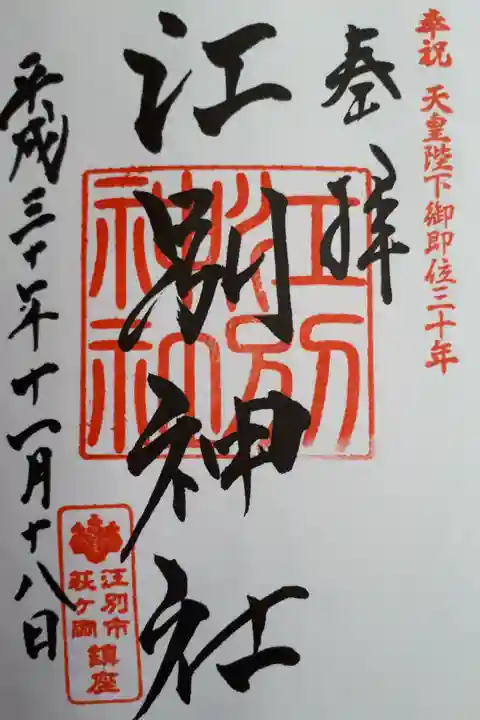 奉祝 天皇陛下御即位三十年
奉拝
江別神社
江別
神社
平成三十年十一月十八日
江別市
萩ヶ岡
鎮座